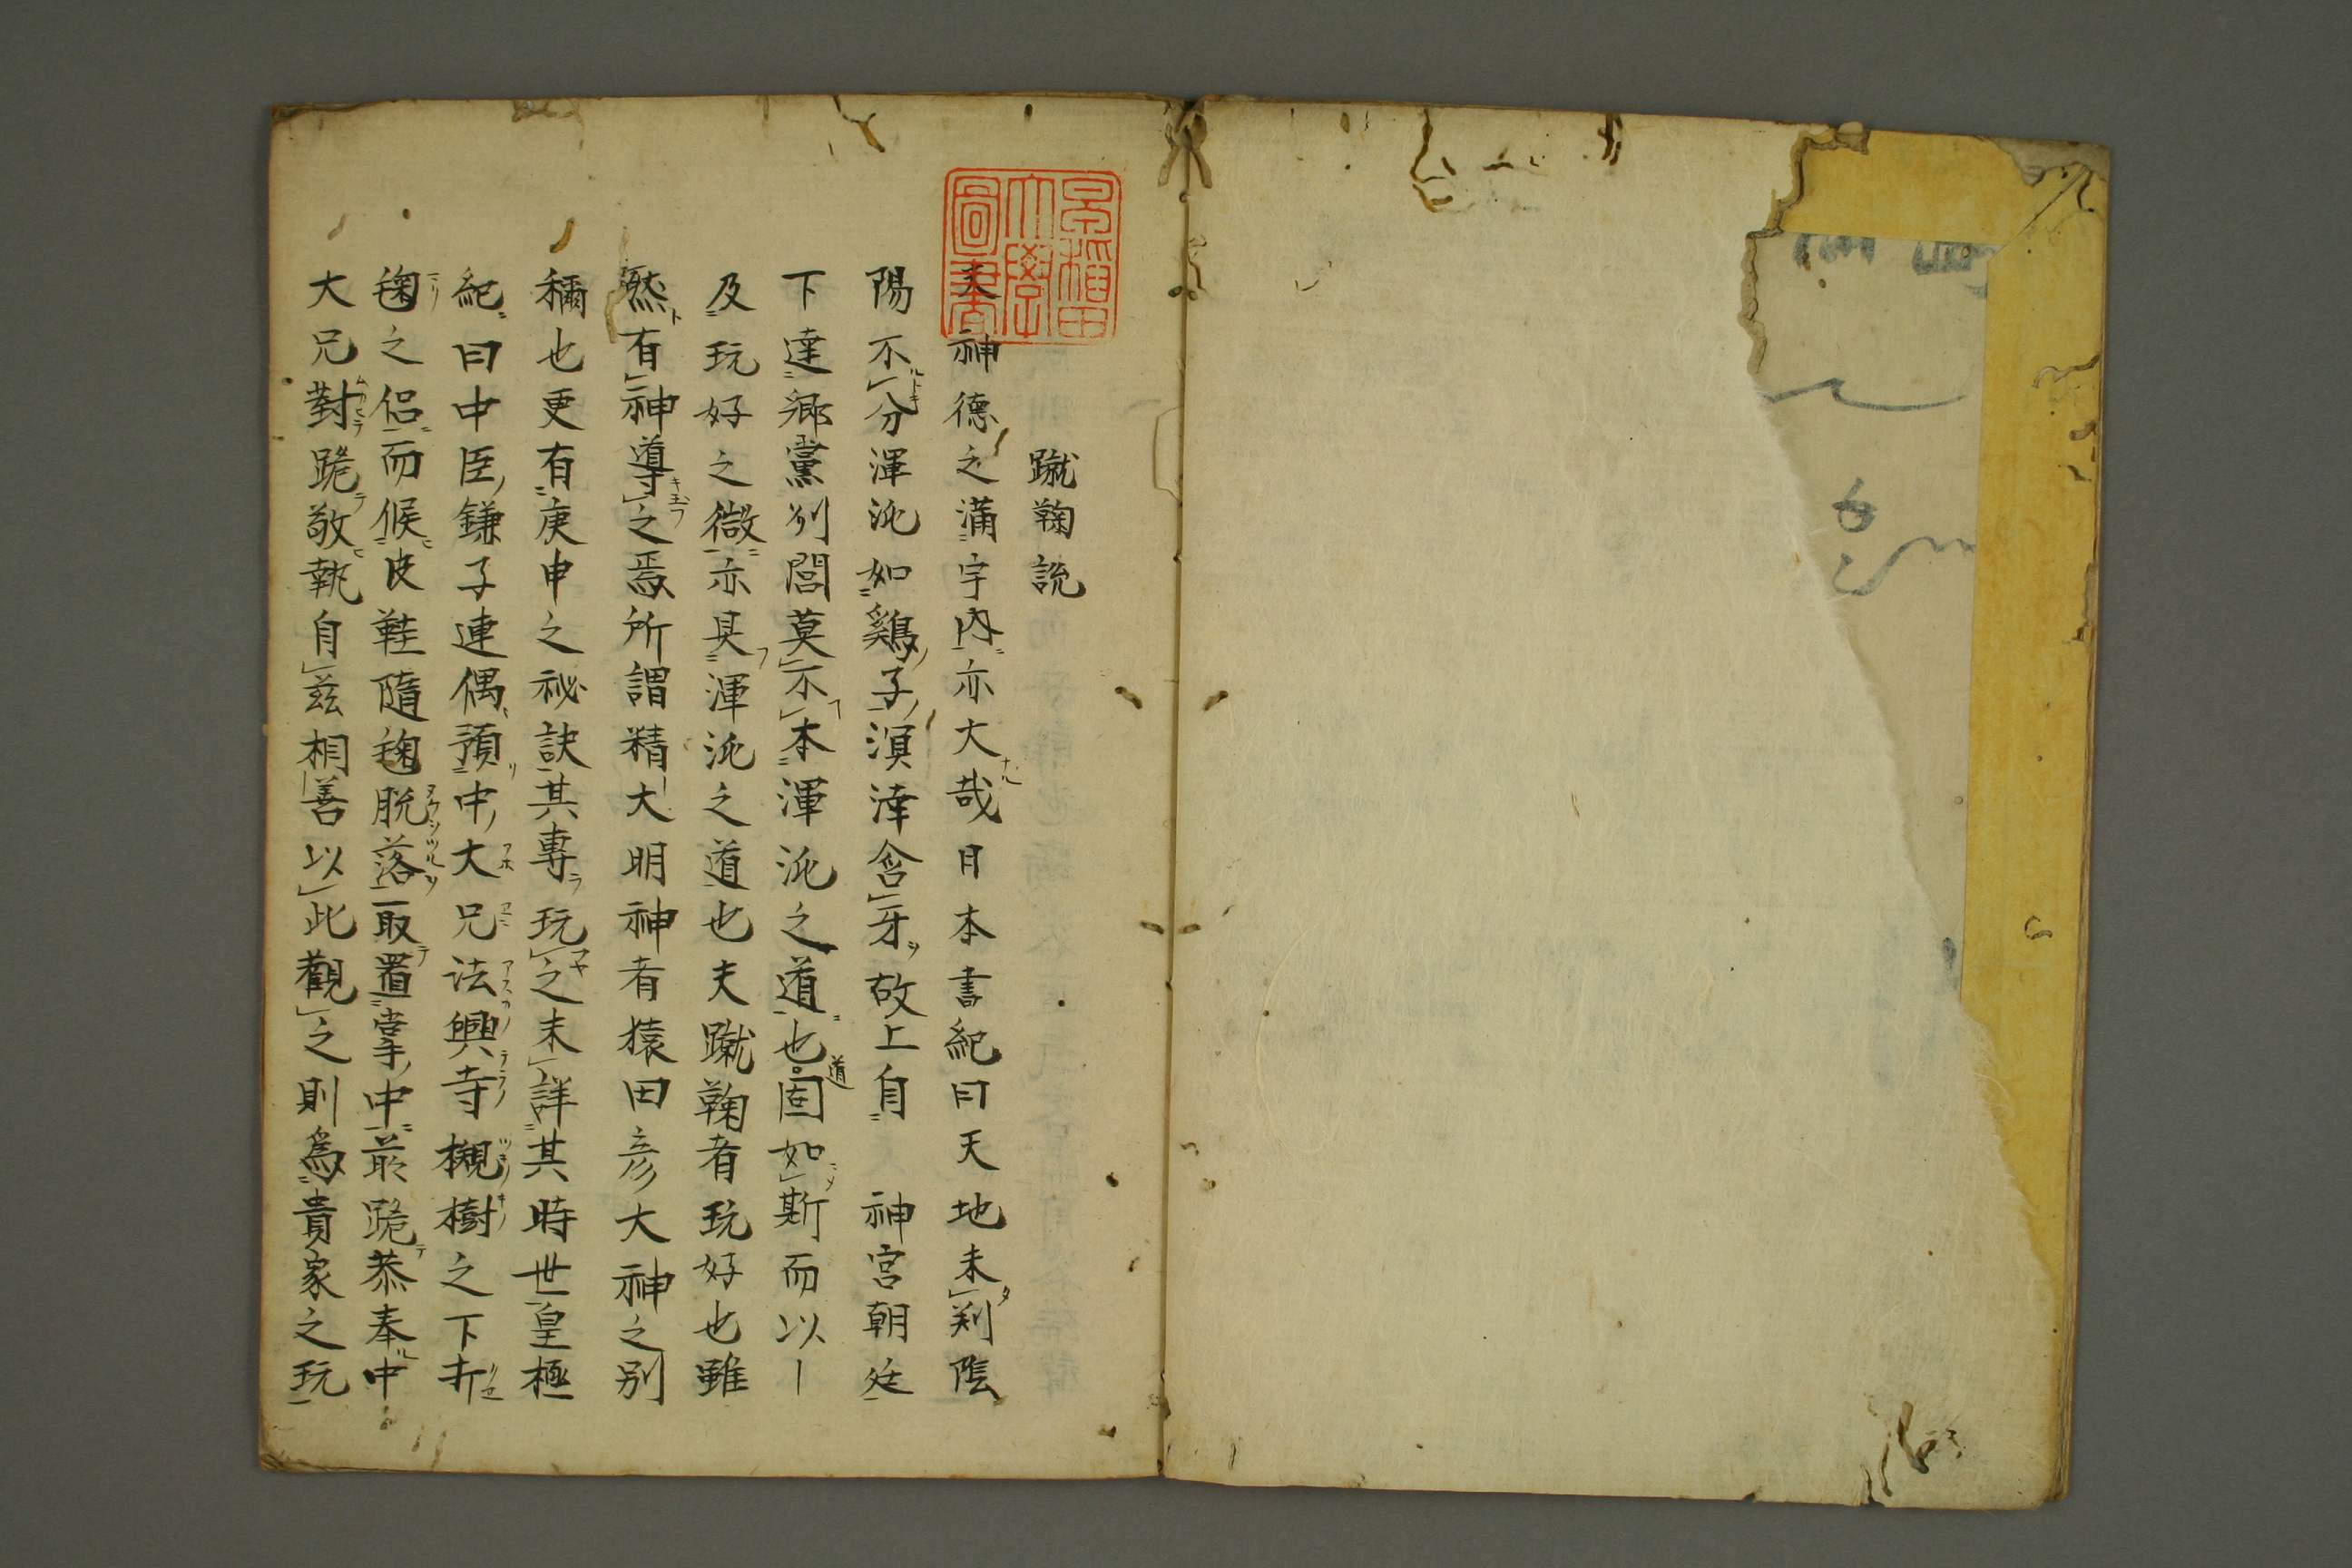 早稲田
大學
圖書
蹴鞠說
夫神德之滿宇内亦大哉日本書紀曰天地未剖陰
陽不分渾沌如鷄子溟涬含牙故上自　神宮朝廷
下達鄉黨列閭莫不本渾沌之道也道固如斯而以
及玩好之微亦具渾沌之道也夫蹴鞠者玩好也雖
然有神導之焉所謂精大明神者猿田彥大神之別
稱也更有庚申之祕訣其專玩之末詳其時世皇極
紀曰中臣鎌子連偶預中大兄法興寺槻樹之下打
毱之侶而候皮鞋隨毱脫落取置掌中前跪恭奉中
大兄對跪敬執自茲相善以此觀之則爲貴家之玩